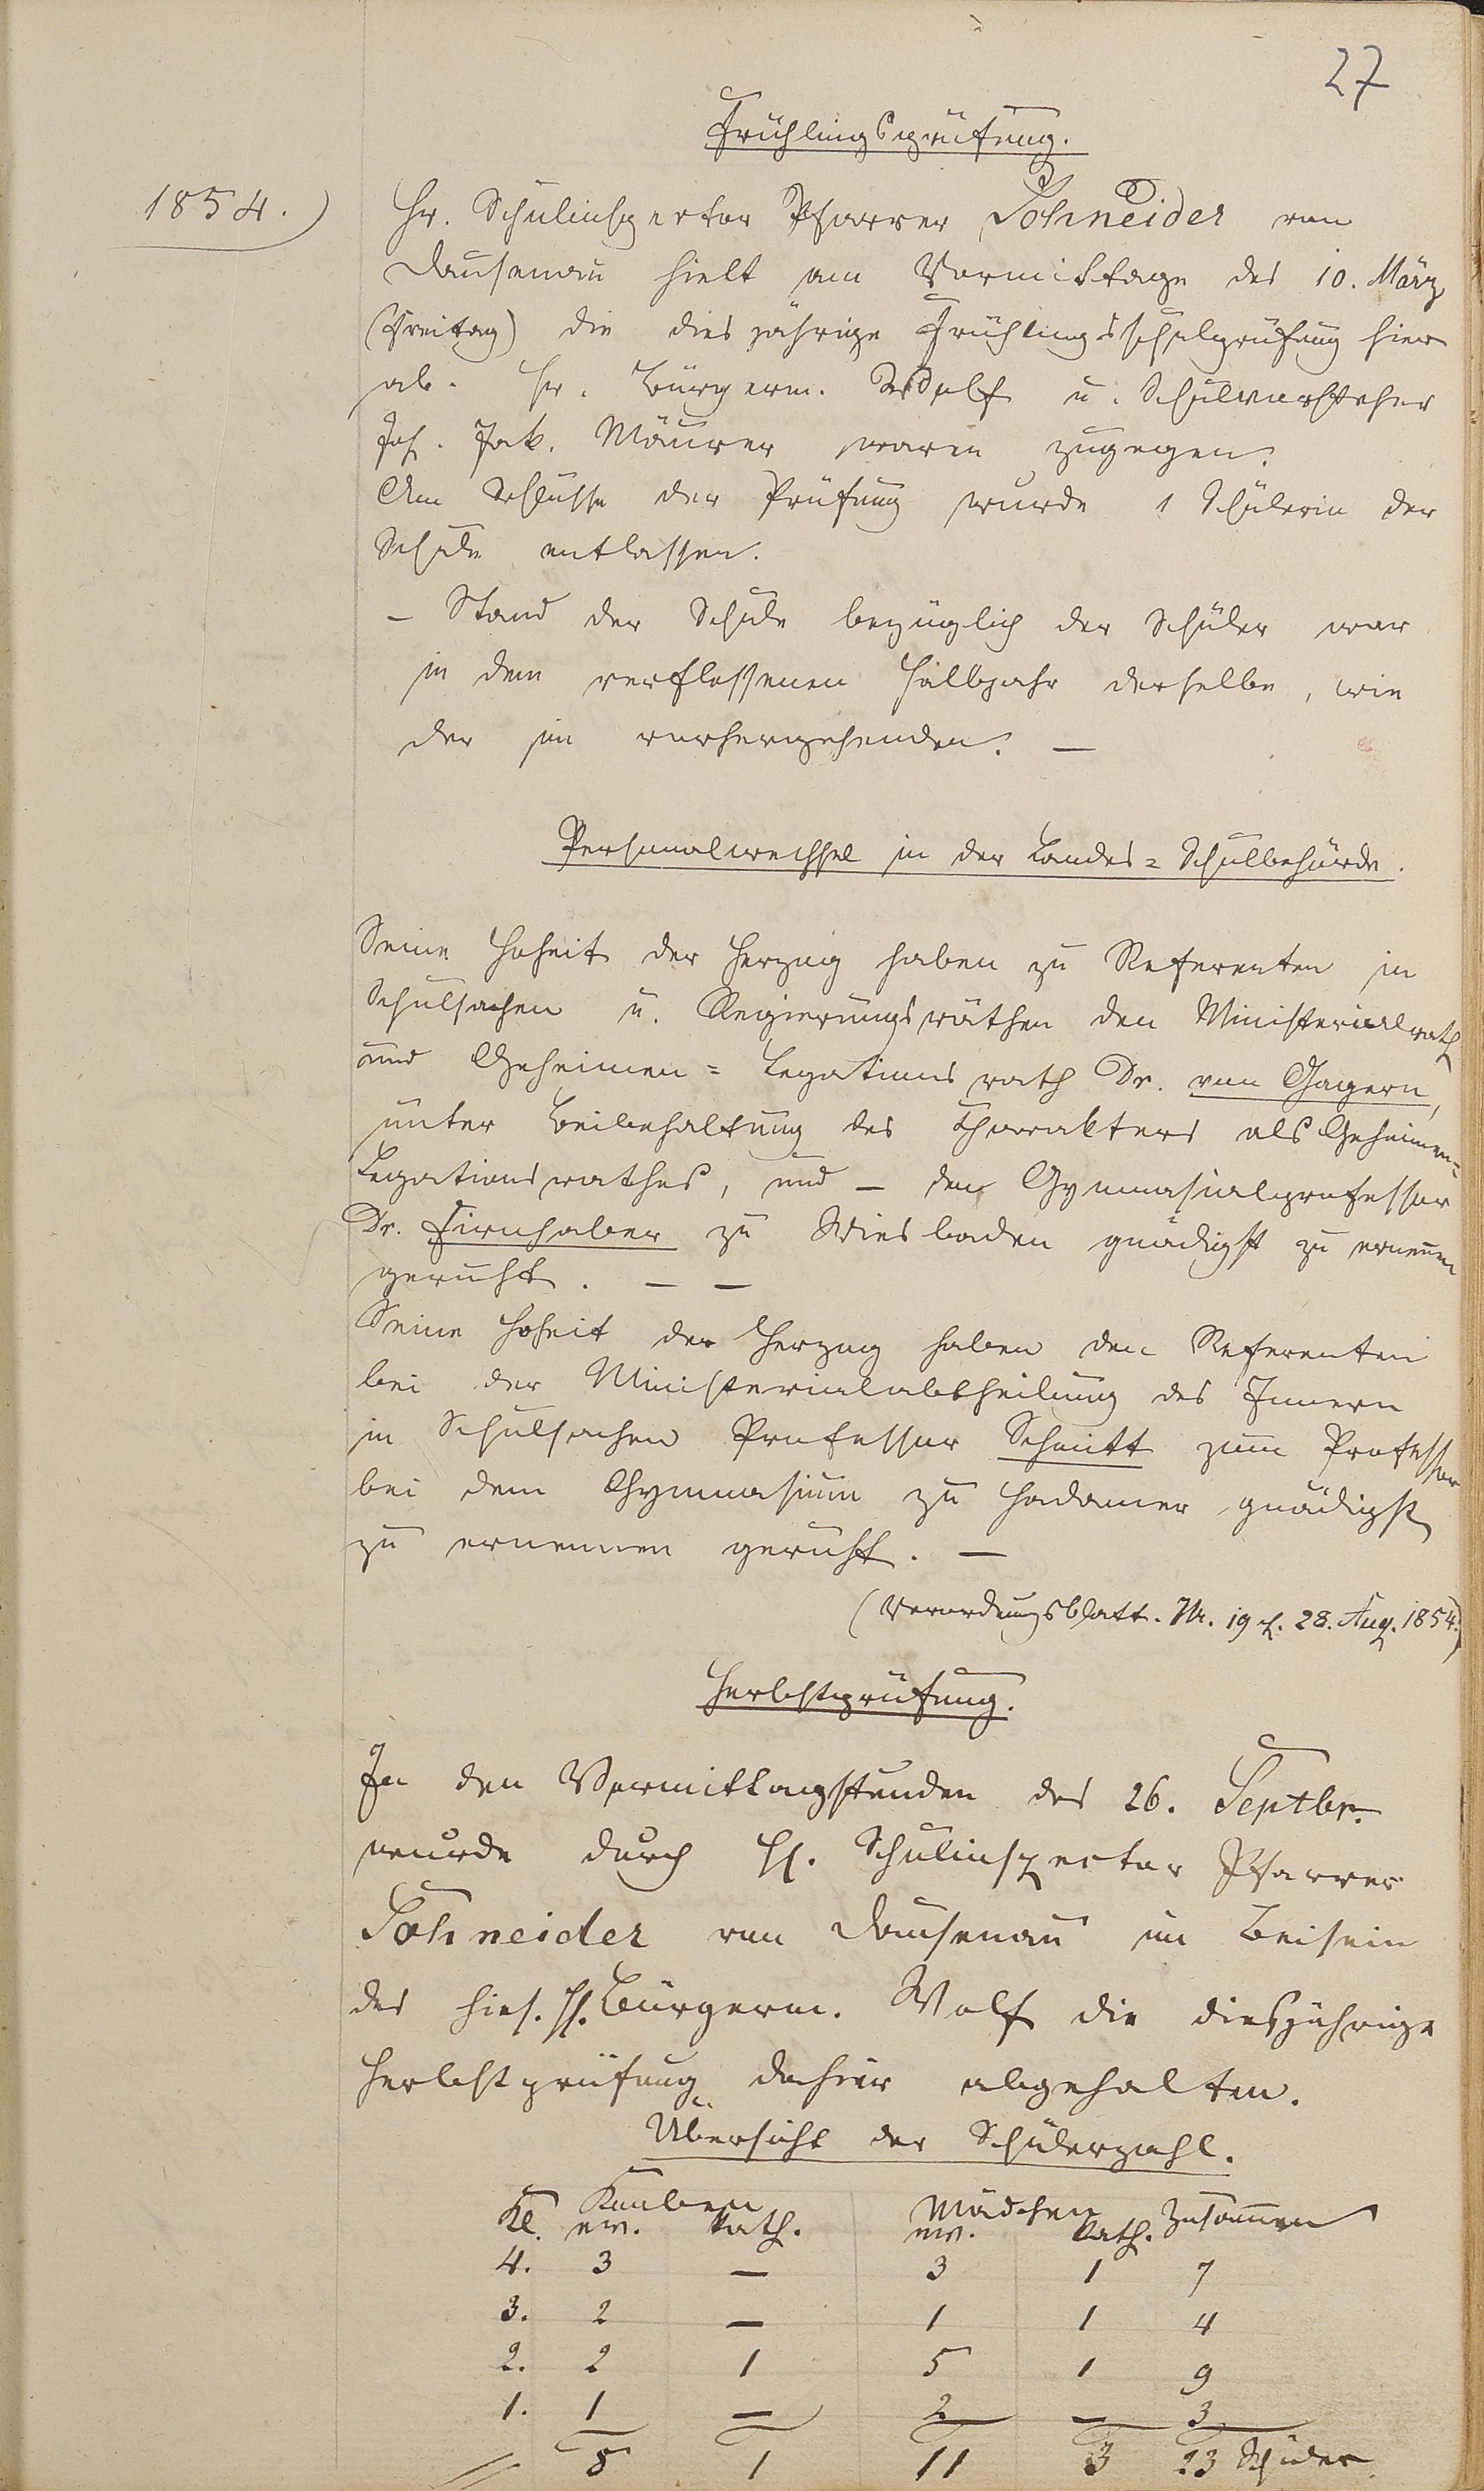 27
Frühlingsprüfung.
1854.)
Hr. Schulinspector Pfarrer Schneider von
Dausenau hielt am Vormittage des 10. März
(Freitag) die diesjährige Frühlingsschulprüfung hier
ab. Hr. Bürgerm. Wolf u. Schulvorsteher
Joh. Jak. Mäurer waren zugegen.
Am Schlusse der Prüfung wurde 1 Schülerin der
Schule entlassen.
– Stand der Schule bezüglich der Schüler war
in dem verflossenen Halbjahr derselbe, wie
der im vorhergehenden. —
Personalwechsel in der Landes=Schulbehörde.
Seine Hoheit der Herzog haben zu Referenten in
Schulsachen u. Regierungsräthen den Ministerialrath
und Geheimen=Legationsrath Dr. von Gagern,
unter Beibehaltung des Charakters als Geheimen=
Legationsrathes, und – den Gymnasialprofessor
Dr. Firnhaber zu Wiesbaden gnädigst zu ernennen
geruht. — —
Seine Hoheit der Herzog haben den Referenten
bei der Ministerialabtheilung des Innern
in Schulsachen Professor Schmitt zum Professor
bei dem Gymnasium zu Hadamar gnädigst
zu ernennen geruht. —
(Verordnungsblatt. Nr. 19 v. 28. Aug. 1854.)
Herbstprüfung.
In den Vormittagsstunden des 26. Septbr.
wurde durch H. Schulinspector Pfarrer
Schneider von Dausenau im Beisein
des hies. H. Bürgerm. Wolf die diesjährige
Herbstprüfung dahier abgehalten.
Übersicht der Schülerzahl.
Knaben Mädchen Zusammen
Kl. ev. kath. ev. kath.
4. 3 — 3 1 7
3. 2 — 1 1 4
2. 2 1 5 1 9
1. 1 — 2 — 3
8 1 11 3 23 Schüler